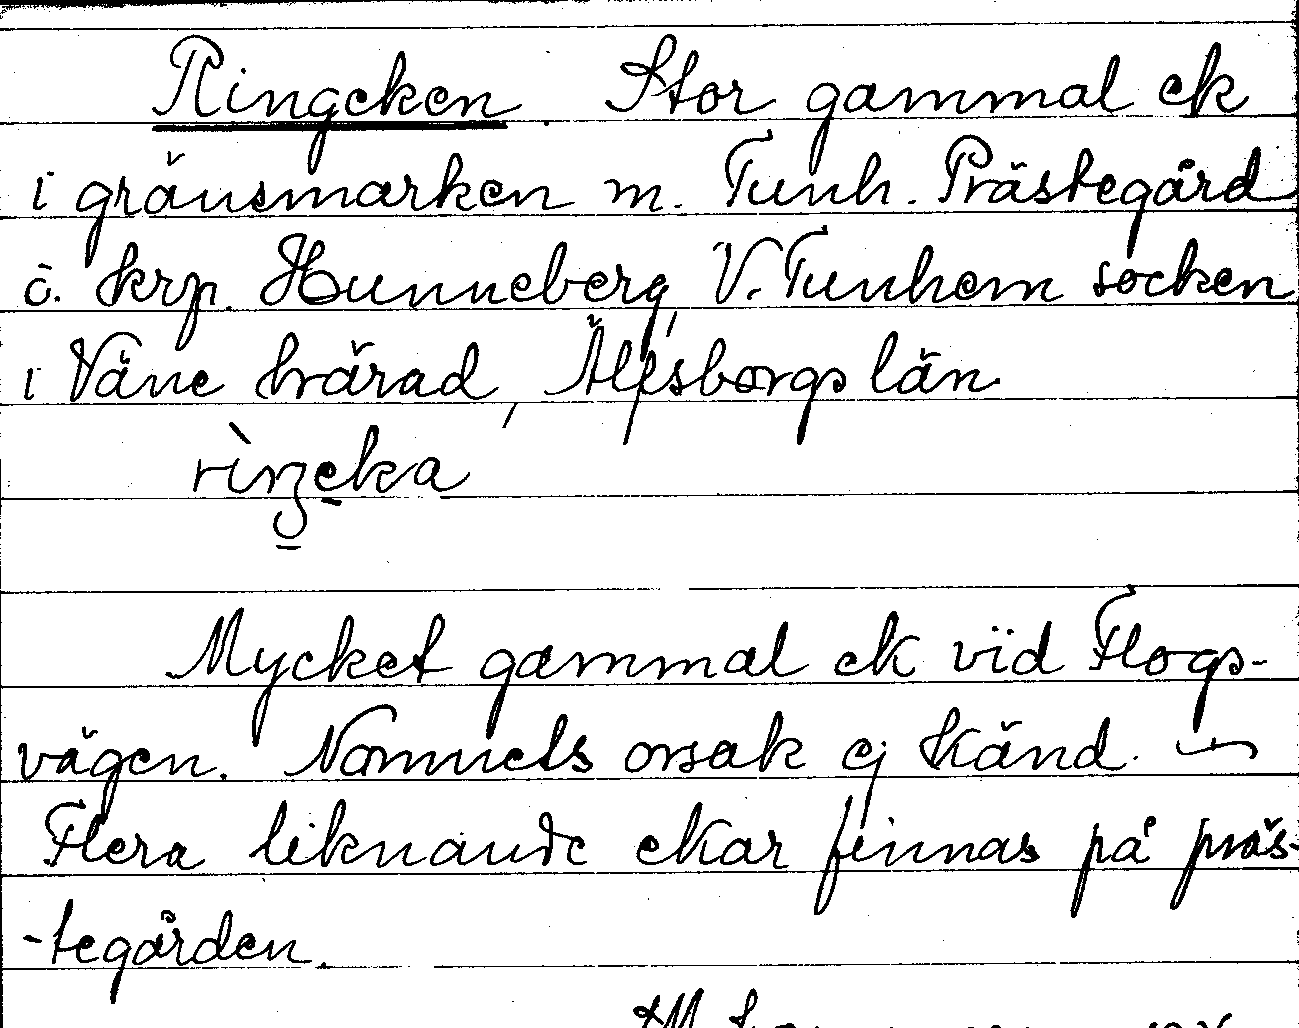 Ringeken. Stor gammal ek
i gränsmarken m. Tunh. Prästegård
o. krp. Hunneberg, V. Tunhem socken
i Väne härad, Älfsborgs län
rìŋeka
Mycket gammal ek vid Flogs-
vägen. Namnets orsak ej känd. —
Flera liknande ekar finnas på präs-
-tegården.